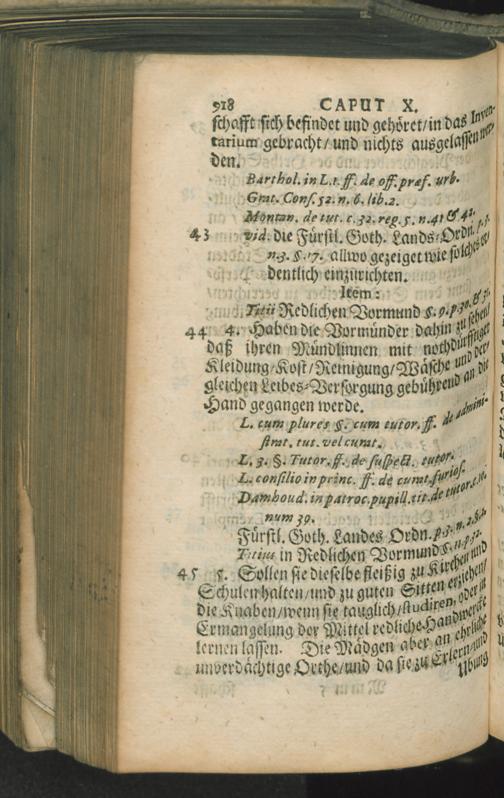 918 CAPUT X.
schafft sich befindet und gehöret/in das Inven-
tarium gebracht/und nichts ausgelassen wer-
den.
Barthol. in L. 1. ff. de off. præf. urb.
Grat. Cons. 52. n. 6. lib. 2.
Montan. de tut. c. 32. reg. 5. n. 41 & 42.
43 vid. die Fürstl. Goth. Lands-Ordn. p. 3.
n. 3. §. 17. allwo gezeiget wie solches or-
dentlich einzurichten.
Item:
Titii Redlichen Vormund §. 9. p. 30. & 31.
44 4. Haben die Vormünder dahin zu sehen/
daß ihren Mündlinnen mit nothdürfftiger
Kleidung/Kost/Reinigung/Wäsche und der-
gleichen Leibes-Versorgung gebührend an die
Hand gegangen werde.
L. cum plures §. cum tutor. ff. de admini-
strat. tut. vel curat.
L. 3. §. Tutor. ff. de suspect. tutor.
L. consilio in princ. ff. de curat. furios.
Damhoud. in patroc. pupill. tit. de tutor. c. 10.
num 39.
Fürstl. Goth. Landes Ordn. p. 3. n. 2. §. 2.
Titius in Redlichen Vormund §. 11. p. 32.
45 5. Sollen sie dieselbe fleißig zu Kirchen und
Schulen halten/und zu guten Sitten erziehen/
die Knaben/wenn sie tauglich/studiren, oder in
Ermangelung der Mittel redliche Handwercke
lernen lassen. Die Mädgen aber an ehrliche
unverdächtige Orthe/und da sie zu Erlern-und
Ubung